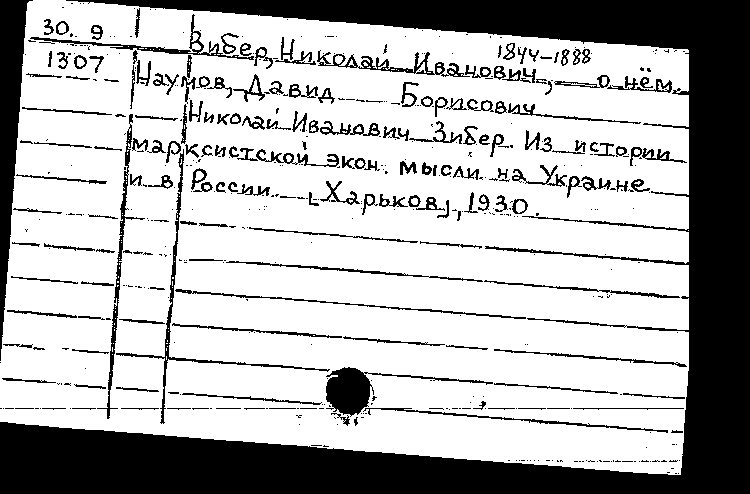 30. 9
1307
1844-1888
Зибер, Николай Иванович, о нём.
Наумов, Давид Борисович
Николай Иванович Зибер. Из истории
марксистской экон. мысли на Украине
и в России. [Харьков], 1930.